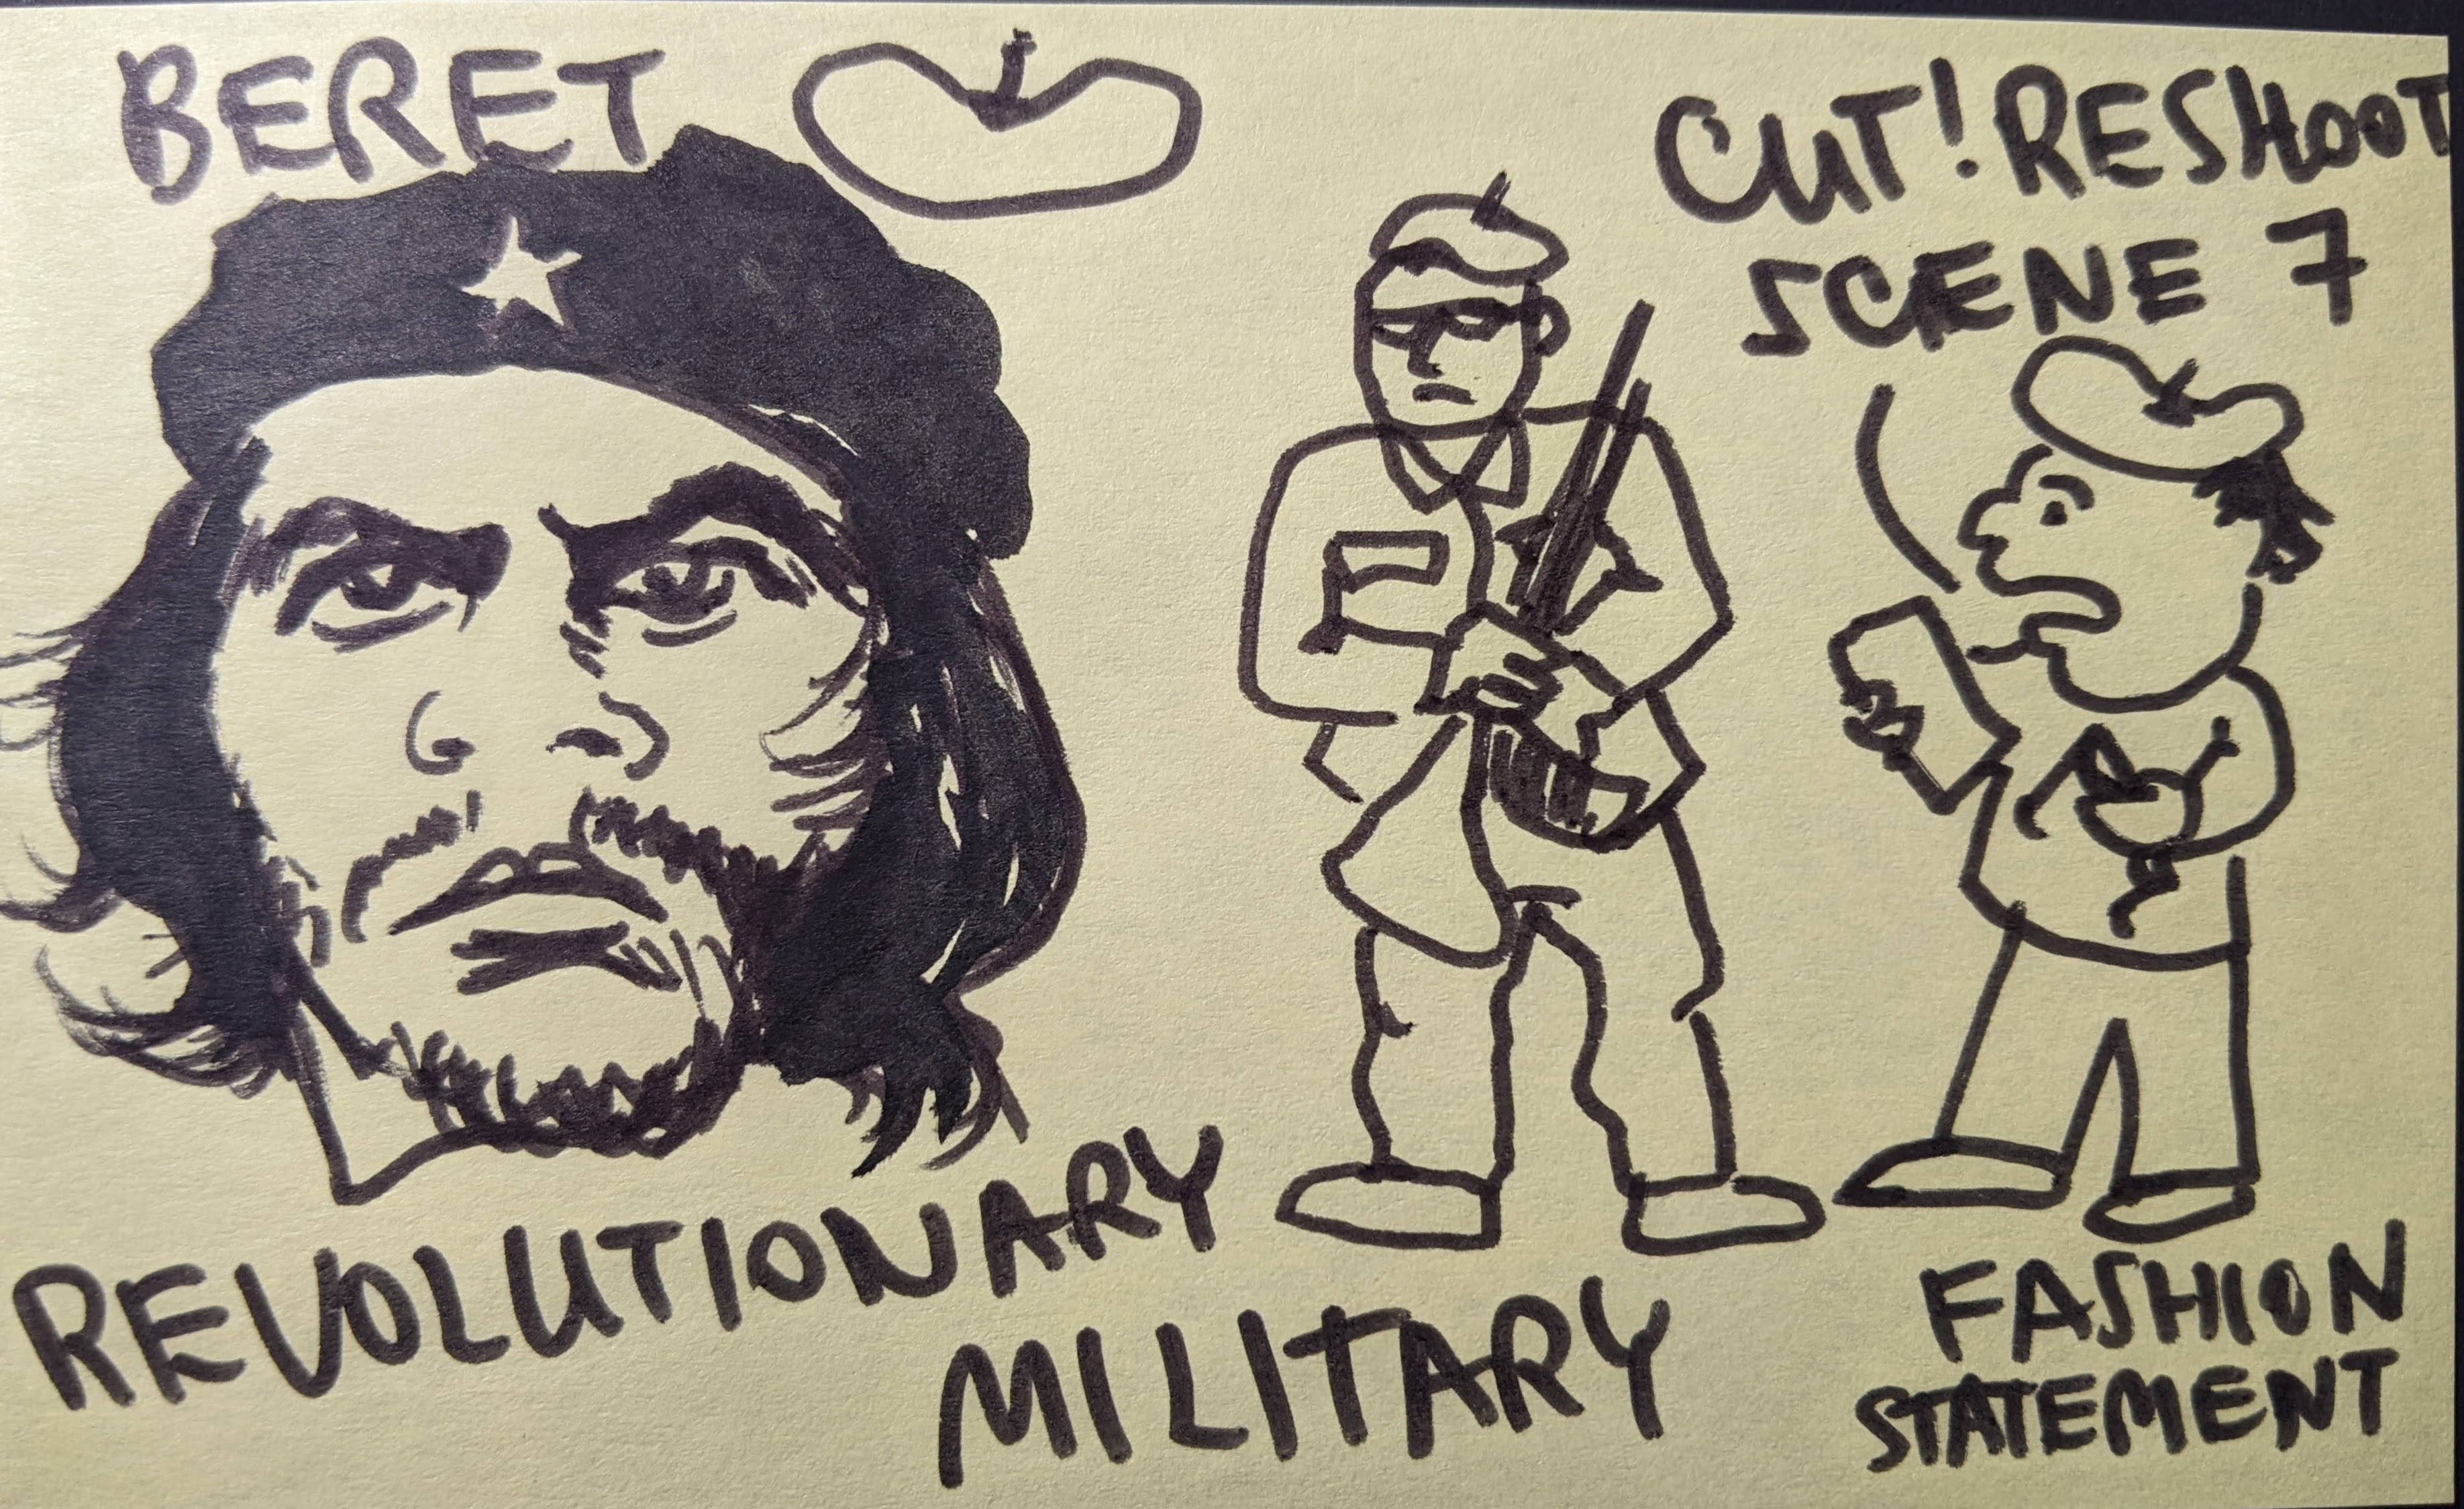 BERET
CUT! RESHOOT
SCENE 7
REVOLUTIONARY
MILITARY
FASHION
STATEMENT